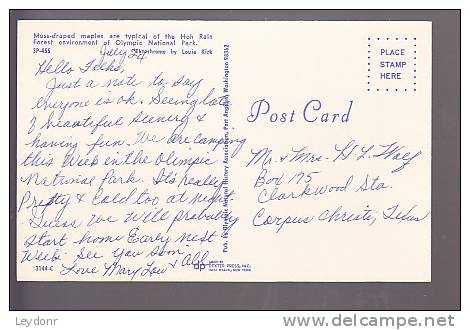 Moss-draped maples are typical of the Hoh Rain
Forest environment of Olympic National Park.
SP-455
Ektachrome by Louie Kirk
July 24
Hello Folks,
Just a note to say
everyone is ok. Seeing lots
of beautiful scenery &
having fun. We are camping
this Week in the Olimpic
National Park. It's really
Pretty & cold too at night
Guess We Will probably
start home Early next
Week. See You Soon.
Love Mary Lou &
Pub. by Olympic Natural History Association, Port Angeles, Washington 98362
13144-C
dp
DEXTER PRESS, INC.
WEST NYACK, NEW YORK
PLACE
STAMP
HERE
Post Card
Mr. & Mrs. H L Wolf
Box 175
Clarkwood Sta.
Corpus Christi, Texas
Leydonr.
www.delcampe.net